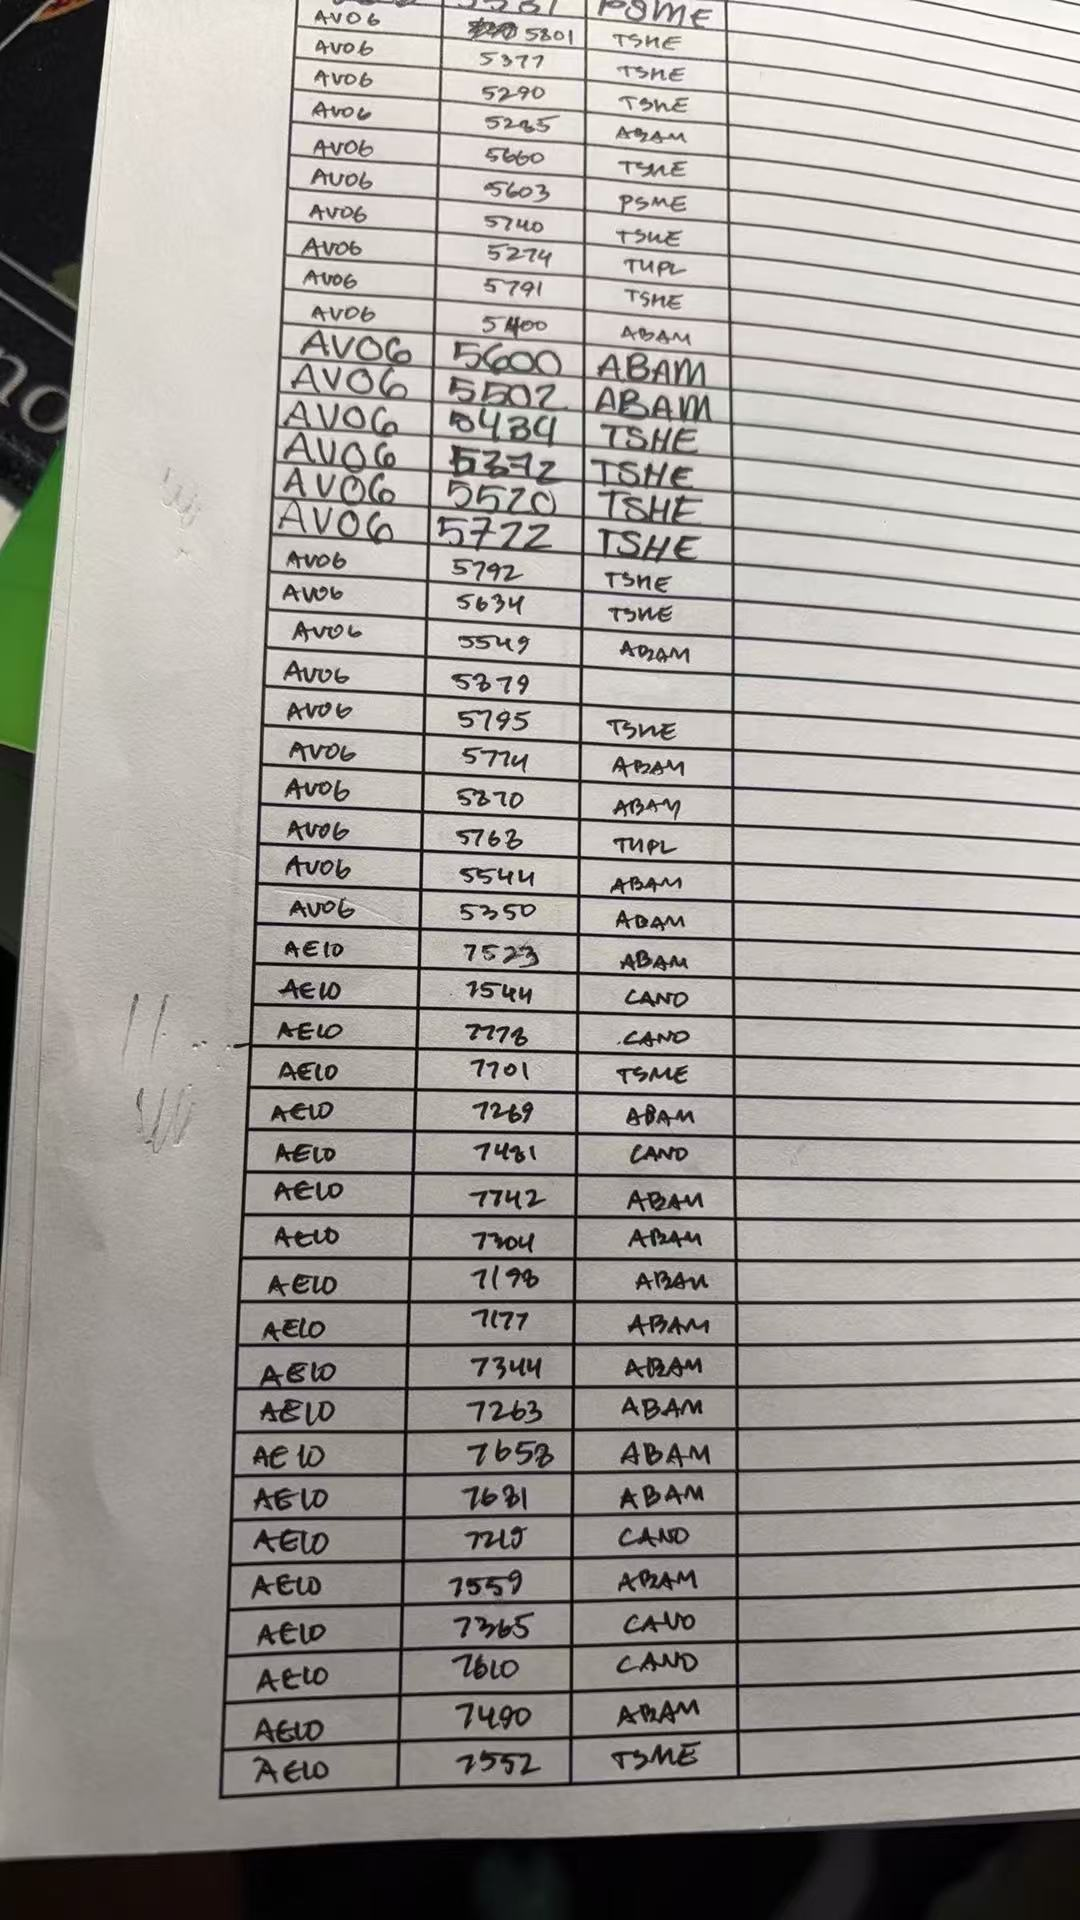 PSME
AV06 5801 TSHE
AV06 5377 TSHE
AV06 5290 TSHE
AV06 5285 ABAM
AV06 5660 TSHE
AV06 5603 PSME
AV06 5740 TSHE
AV06 5274 THPL
AV06 5791 TSHE
AV06 5400 ABAM
AV06 5600 ABAM
AV06 5502 ABAM
AV06 5484 TSHE
AV06 5372 TSHE
AV06 5520 TSHE
AV06 5722 TSHE
AV06 5792 TSHE
AV06 5634 TSHE
AV06 5549 ABAM
AV06 5379
AV06 5795 TSHE
AV06 5774 ABAM
AV06 5370 ABAM
AV06 5768 THPL
AV06 5544 ABAM
AV06 5350 ABAM
AE10 7523 ABAM
AE10 7544 CANO
AE10 7778 CANO
AE10 7701 TSME
AE10 7269 ABAM
AE10 7481 CANO
AE10 7742 ABAM
AE10 7304 ABAM
AE10 7198 ABAM
AE10 7177 ABAM
AE10 7344 ABAM
AE10 7263 ABAM
AE10 7658 ABAM
AE10 7681 ABAM
AE10 7215 CANO
AE10 7559 ABAM
AE10 7365 CANO
AE10 7610 CANO
AE10 7490 ABAM
AE10 7552 TSME